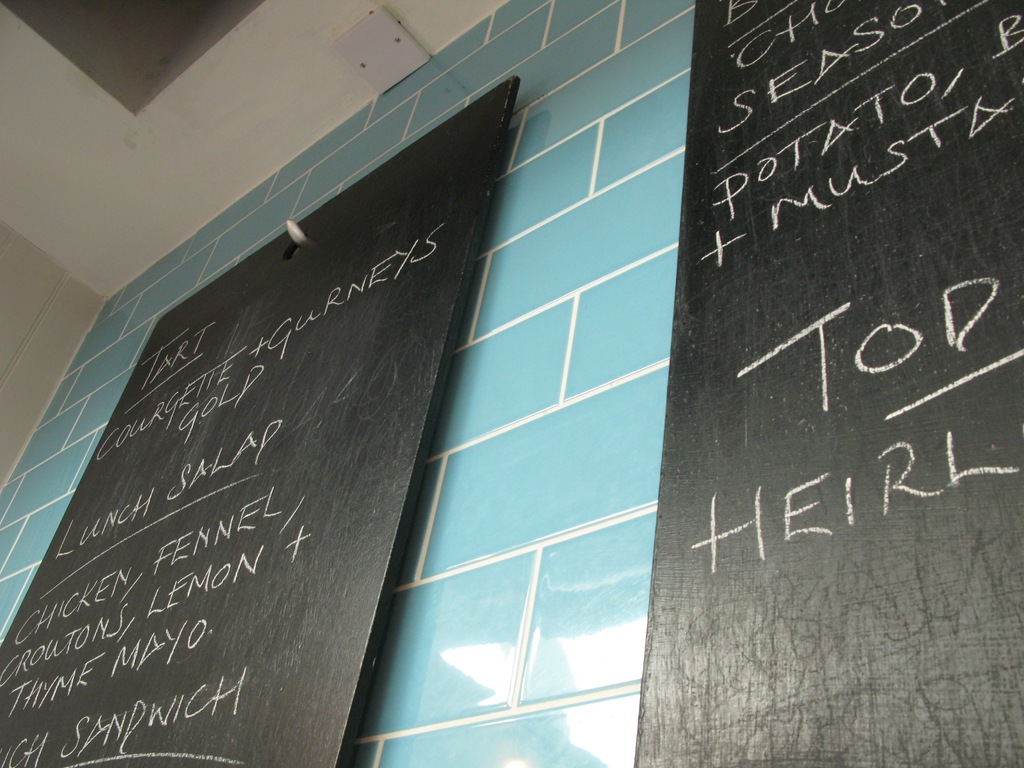 TART
COURGETTE + GURNEYS
GOLD
LUNCH SALAD
CHICKEN, FENNEL,
CROUTONS, LEMON +
THYME MAYO.
SANDWICH
B
CHO
SEASO
POTATO, B
+ MUSTA
TOD
HEIRL